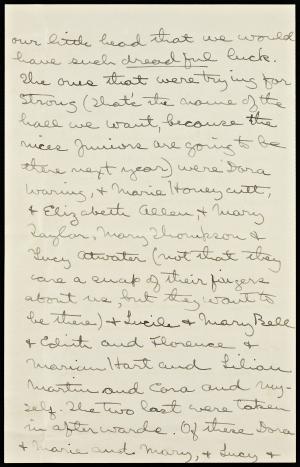 our little head that we would
have such dreadful luck.
The ones that were trying for
Strong (that's the name of the
hall we want, because the
nices Juniors are going to be
there next year) were Dora
Waring, & Marie Honeycutt,
& Elizabeth Allen, & Mary
Taylor, Mary Thompson &
Lucy Atwater (not that they
care a snap of their fingers
about us, but they want to
be there) & Lucile & Mary Bell
& Edith and Florence &
Marian Hart and Lilian
Martin and Cora and my-
self. The two last were taken
in afterwards. Of these Dora
& Marie and Mary, & Lucy &